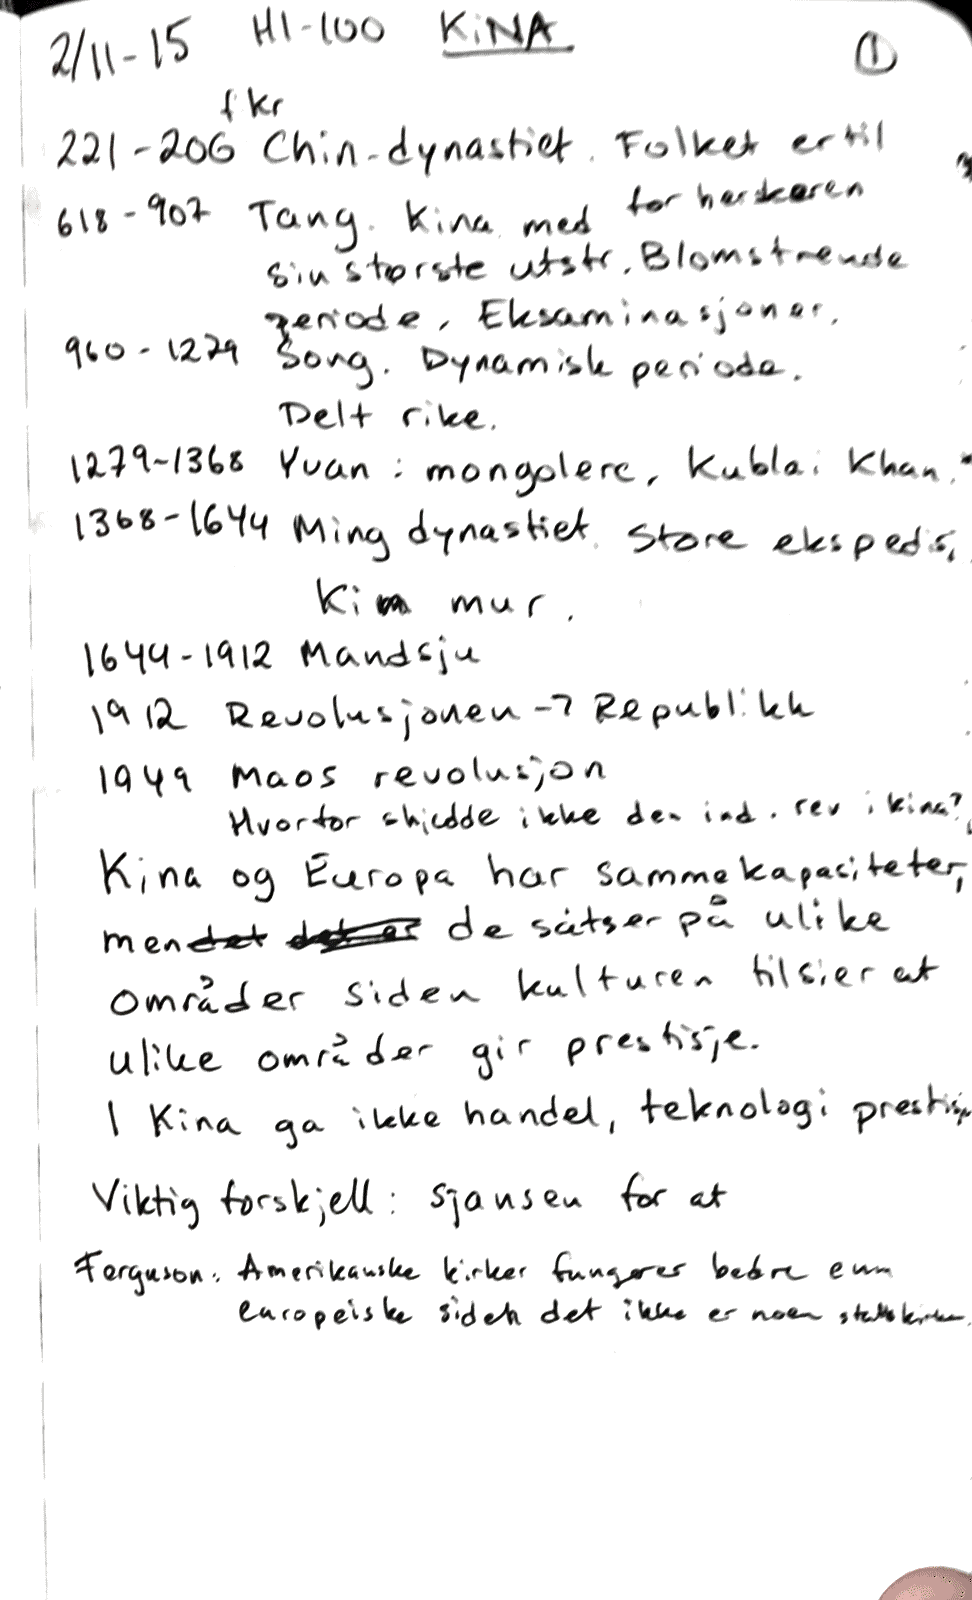 2/11-15 HI-100 KINA 1
f kr
221-206 Chin-dynastiet. Folket er til
for herskeren
618-907 Tang. Kina med
sin største utstr. Blomstrende
periode, Eksaminasjoner.
960-1279 Song. Dynamisk periode.
Delt rike.
1279-1368 Yuan: mongolere, Kublai Khan.
1368-1644 Ming dynastiet. Store ekspedis,
Kin mur.
1644-1912 Mandsju
1912 Revolusjonen -> Republikk
1949 Maos revolusjon
Hvorfor skjedde ikke den ind. rev i kina?
Kina og Europa har samme kapasiteter,
men det de satser på ulike
områder siden kulturen tilsier at
ulike områder gir prestisje.
I Kina ga ikke handel, teknologi prestisje
Viktig forskjell: sjansen for at
Ferguson: Amerikanske kirker fungerer bedre enn
europeiske siden det ikke er noen statskirke.